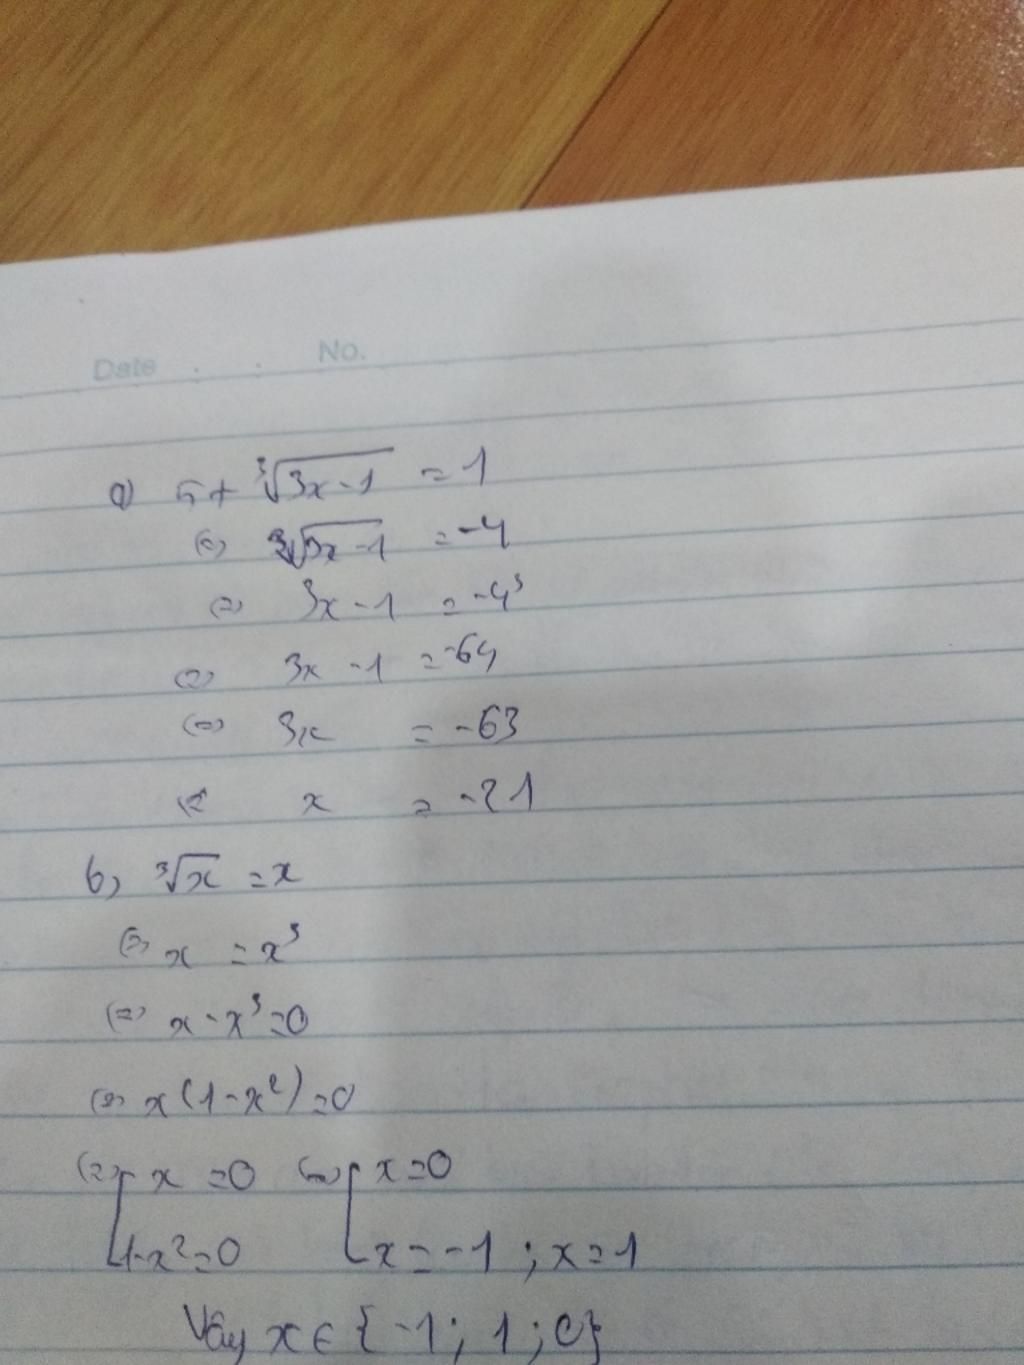 Date : : No.
a) 5 + ∛(3x-1) = 1
<=> ∛(3x-1) = -4
<=> 3x - 1 = -4³
<=> 3x - 1 = -64
<=> 3x = -63
<=> x = -21
b, ∛x = x
<=> x = x³
<=> x - x³ = 0
<=> x(1-x²) = 0
<=> [ x = 0 <=> [ x = 0
1-x² = 0 x = -1 ; x = 1
Vậy x ∈ {-1; 1; 0}